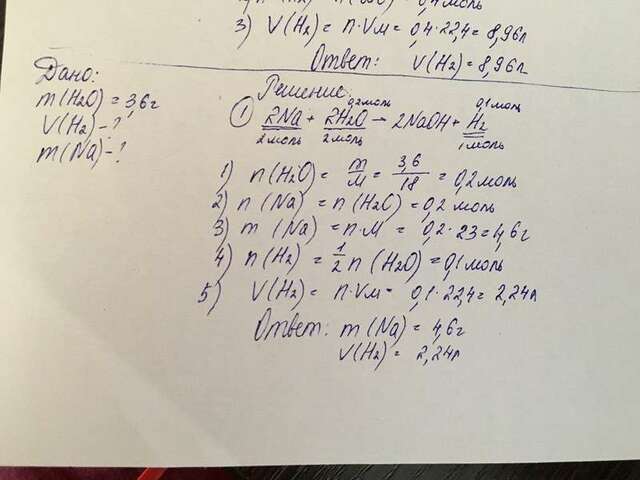 3) V(H₂) = n·Vм = 0,4·22,4 = 8,96л
Ответ: V(H₂) = 8,96л
Дано:
m(H₂O) = 3,6г
V(H₂) - ?
m(Na) - ?
Решение:
0,2моль 0,1моль
① 2Na + 2H₂O → 2NaOH + H₂
2моль 2моль 1моль
1) n(H₂O) = m/M = 3,6/18 = 0,2моль
2) n(Na) = n(H₂O) = 0,2 моль
3) m(Na) = n·M = 0,2·23 = 4,6г
4) n(H₂) = 1/2 n(H₂O) = 0,1моль
5) V(H₂) = n·Vм = 0,1·22,4 = 2,24л
Ответ: m(Na) = 4,6г
V(H₂) = 2,24л